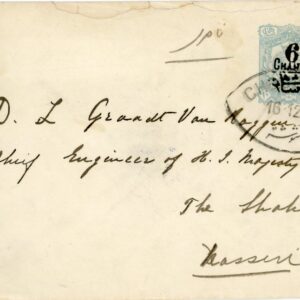 6
CHAHIS
16.12
D. L Graadt Van Roggen
Chief Engineer of H. I. Majesty
The Shah
Nasseri